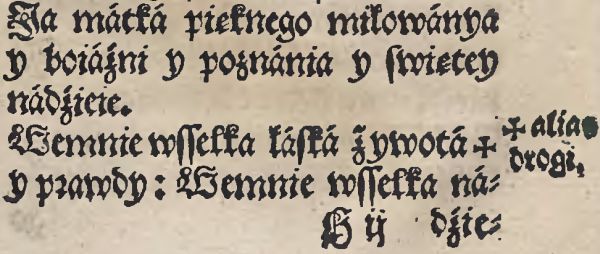 Ja mátká pięknego miłowánya
y boiáźni y poznánia y swiętey
nádźieie.
Wemnie wsselka łáská żywotá ✢
✢ alias
drogi,
y prawdy: Wemnie wsselka ná⸗
G ij dźie⸗